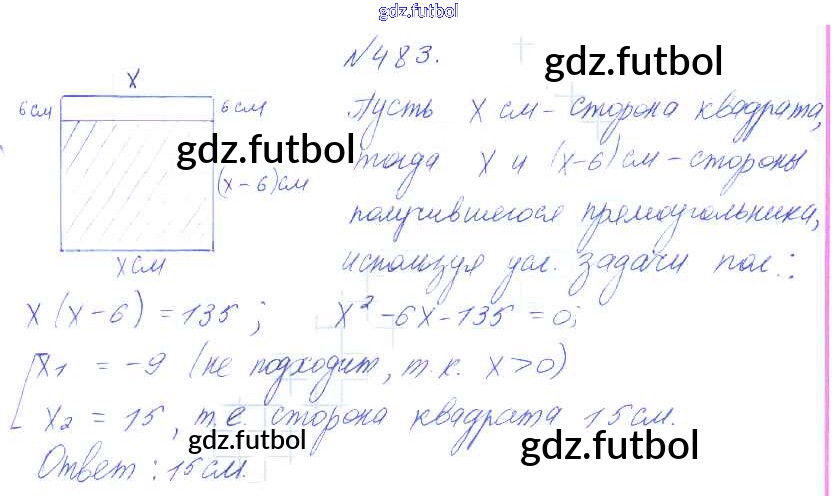 gdz.futbol
№483.
gdz.futbol
x
6 см 6 см
Пусть x см - сторона квадрата,
gdz.futbol
тогда x и (x-6) см - стороны
(x-6) см
получившегося прямоугольника,
x см
используя усл. задачи пол.:
x(x-6) = 135; x² - 6x - 135 = 0;
x₁ = -9 (не подходит, т.к. x>0)
x₂ = 15, т.е. сторона квадрата 15 см.
gdz.futbol
gdz.futbol
Ответ: 15 см.